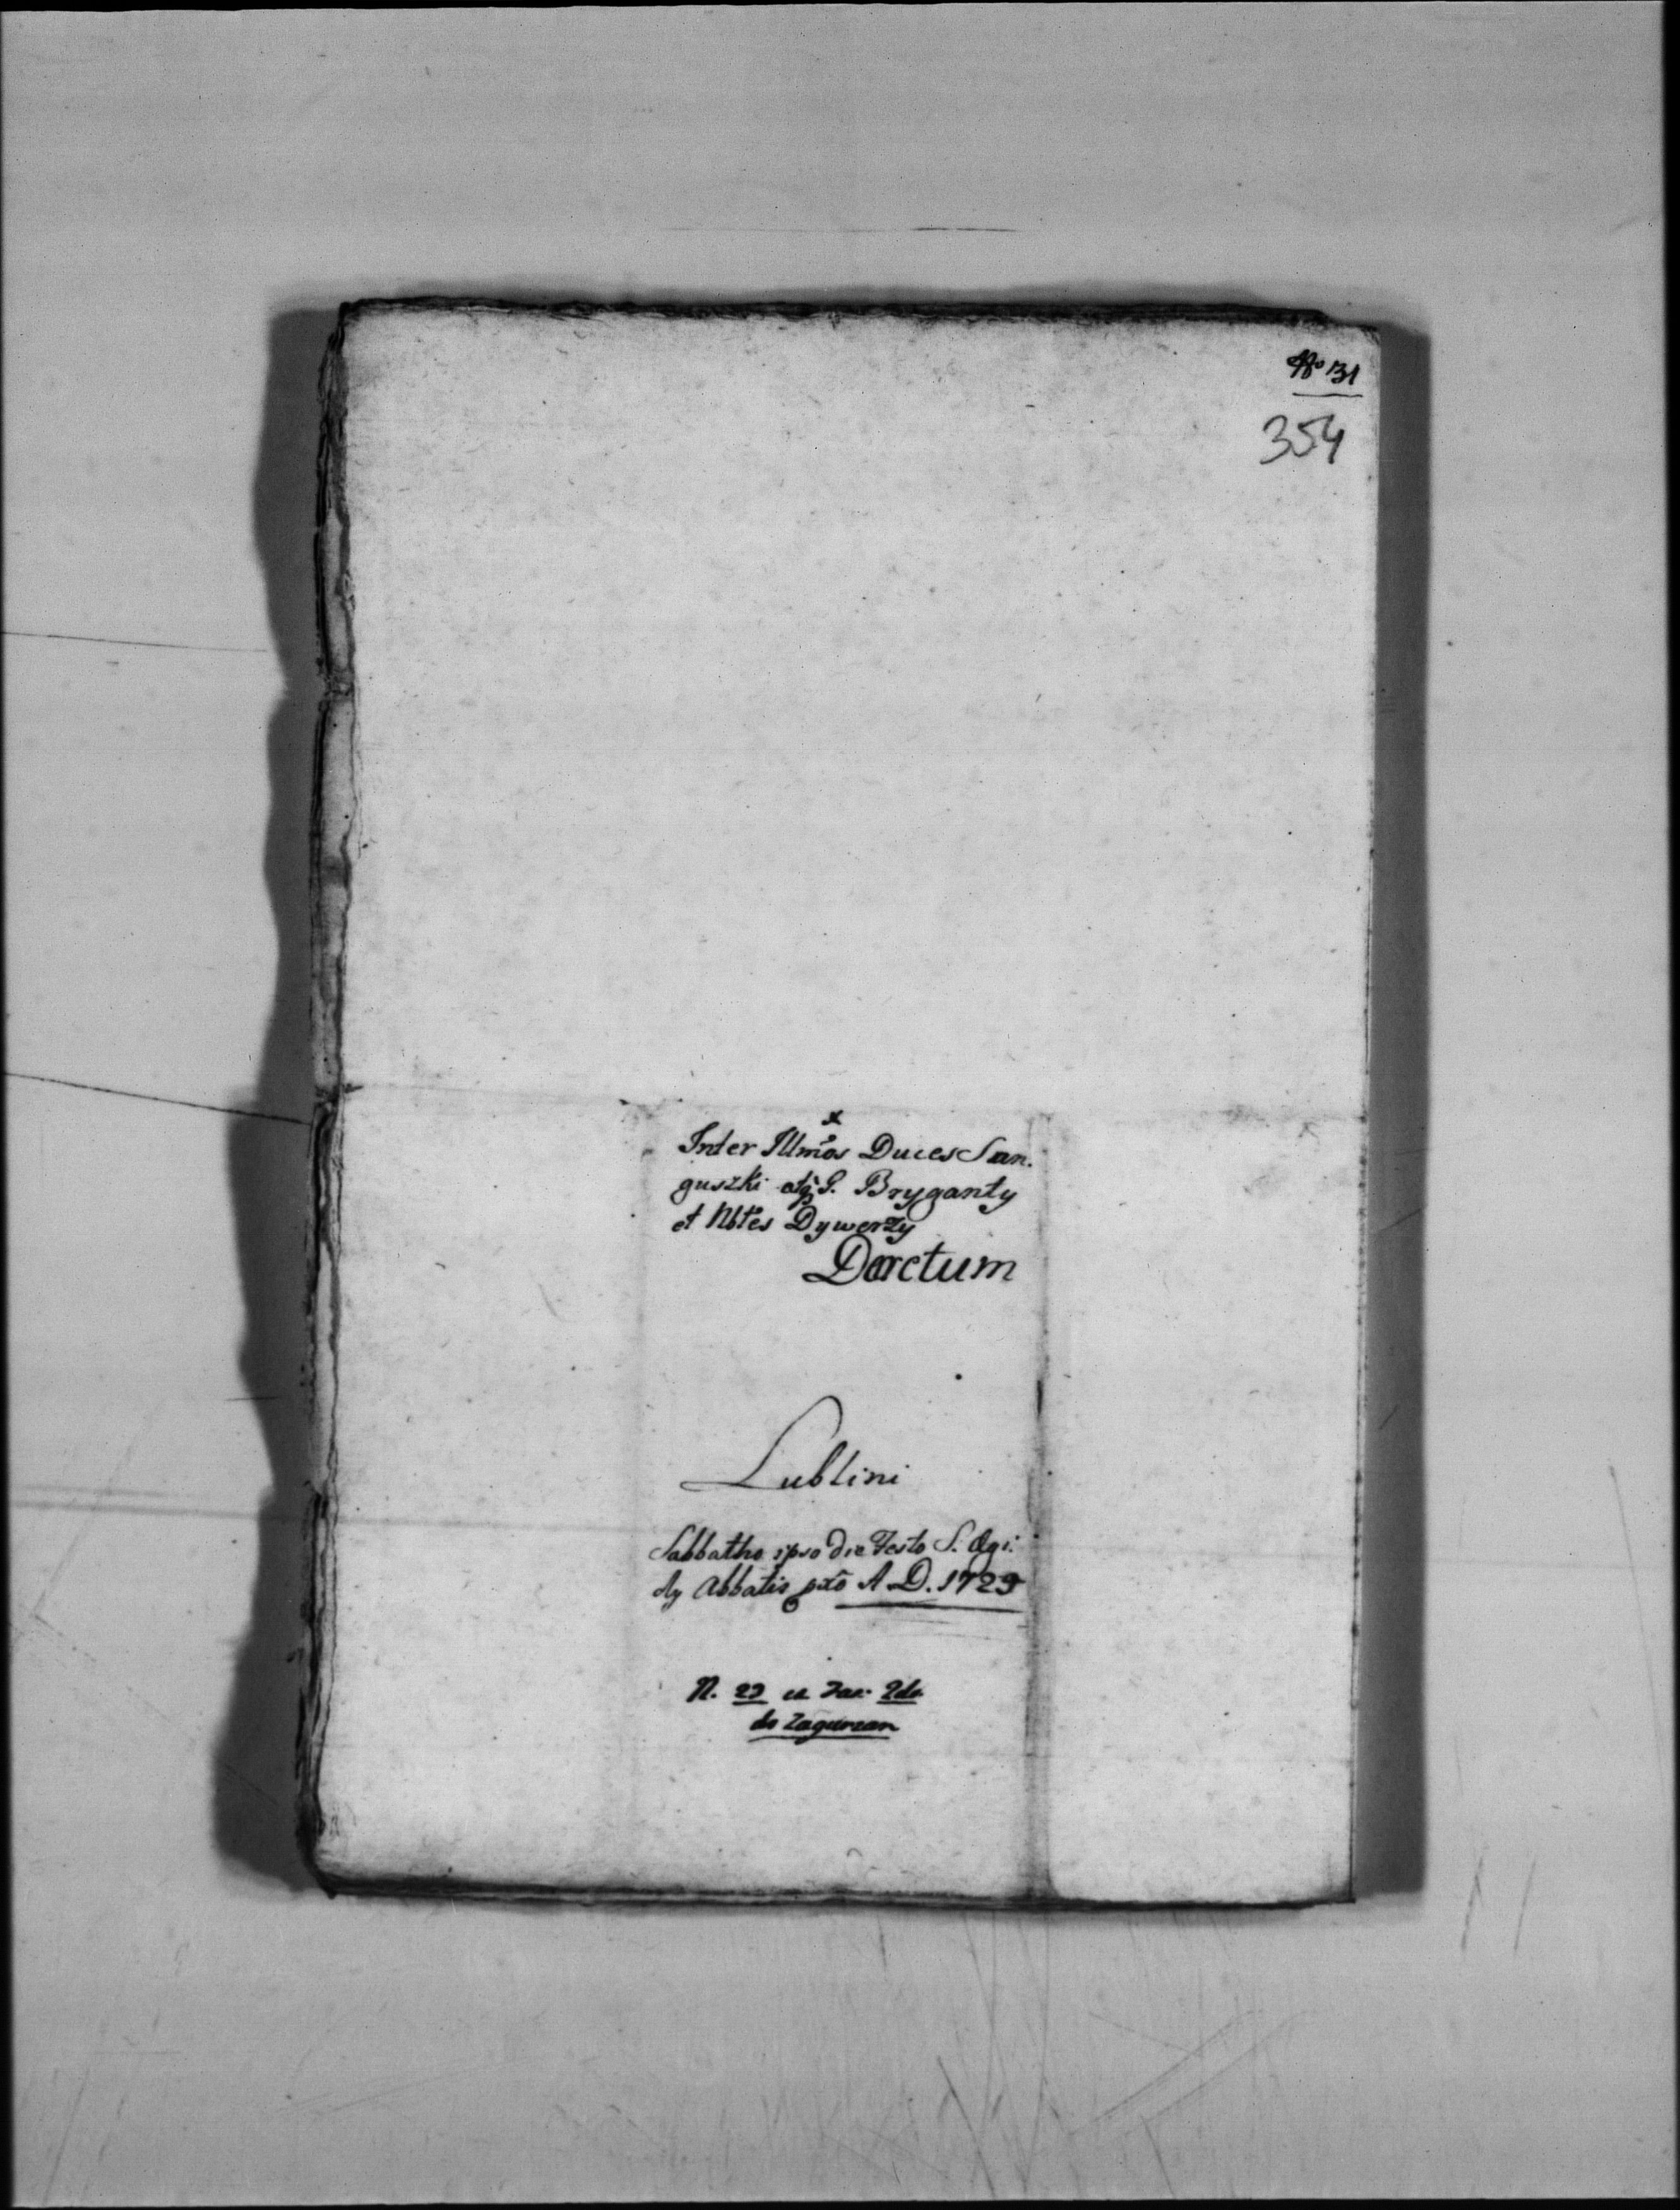 No 31
354
Inter Illmos Duces San.
guszki atq; G. Bryganty
et Nbles Dywerzy
Decretum
Lublini
Sabbatho ipso die Festo S. Ægi.
dy Abbatis A. D. 1729
N. 29 Fas. 2do
do Zagurzan